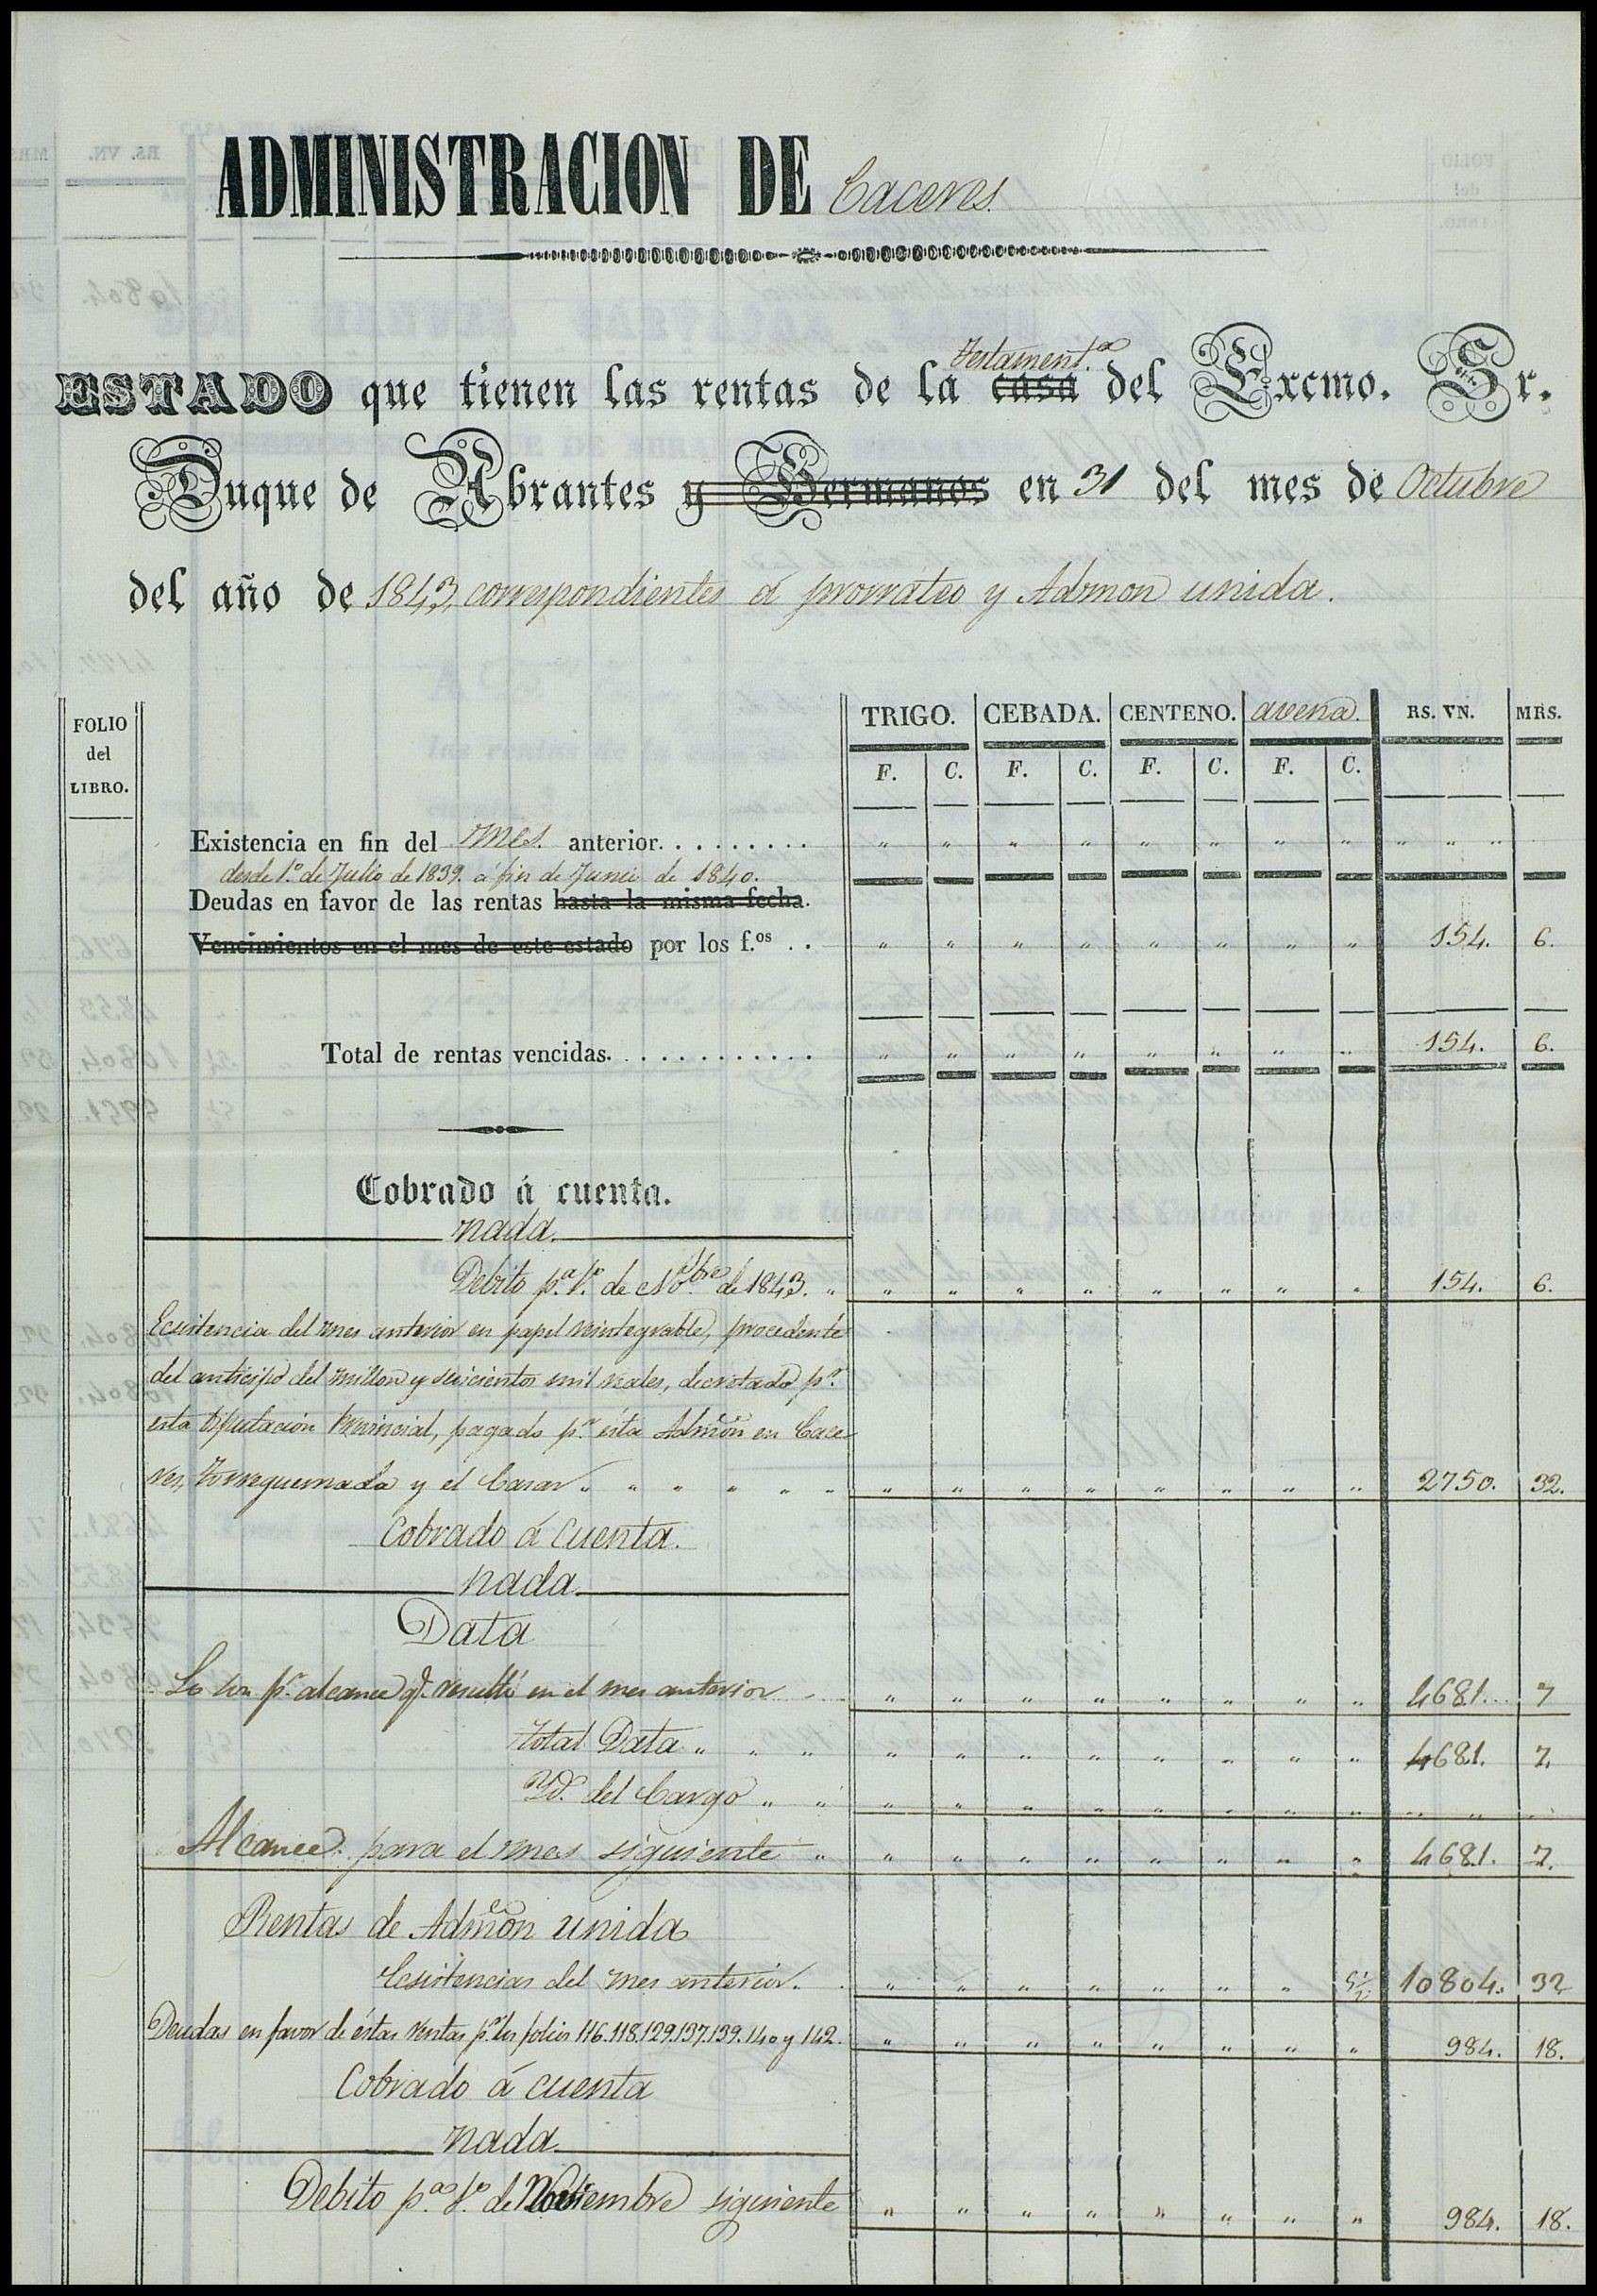 ADMINISTRACION DE Caceres.
Testament.ª
ESTADO que tienen las rentas de la casa del Excmo. Sr.
Duque de Abrantes y Hermanos en 31 del mes de Octubre
del año de 1843, correspondientes á prorrateo y Admon unida.
FOLIO del LIBRO.
TRIGO. CEBADA. CENTENO. avena. RS. VN. MRS.
F. C. F. C. F. C. F. C.
Existencia en fin del mes. anterior. . . . . . . . . . " " " " " " " " " " "
desde 1.º de Julio de 1839. á fin de Junio de 1840.
Deudas en favor de las rentas hasta la misma fecha.
Vencimientos en el mes de este estado por los f.os . . " " " " " " " " 154. 6.
Total de rentas vencidas. . . . . . . . . . . . . " " " " " " " " 154. 6.
Cobrado á cuenta.
nada.
Debito p.ª 1.º de Nobre de 1843. " " " " " " " " " 154. 6.
Ecsistencia del mes anterior en papel reintegrable, procedente
del anticipo del millon y seiscientos mil reales, decretado p.r
esta Diputacion Provincial, pagado p.r ésta Admon en Cace
res, Torrequemada y el Casar " " " " " " " " " " " " " " 2750. 32.
Cobrado á cuenta.
nada.
Data
Lo son p.r alcance q.e resultó en el mes anterior " " " " " " " " 4681. 7
Total Data " " " " " " " " " " " 4681. 7.
Yd. del Cargo " " " " " " " " " " " " "
Alcance para el mes siguiente " " " " " " " " " 4681. 7.
Rentas de Admon unida
Ecsistencias del mes anterior. " " " " " " " 5½ 10804. 32
Deudas en favor de éstas rentas p.r los folios 116.118.129.137.139.140 y 142. " " " " " " " " 984. 18.
Cobrado á cuenta
nada.
Debito p.ª 1.º de Noviembre siguiente " " " " " " " " 984. 18.